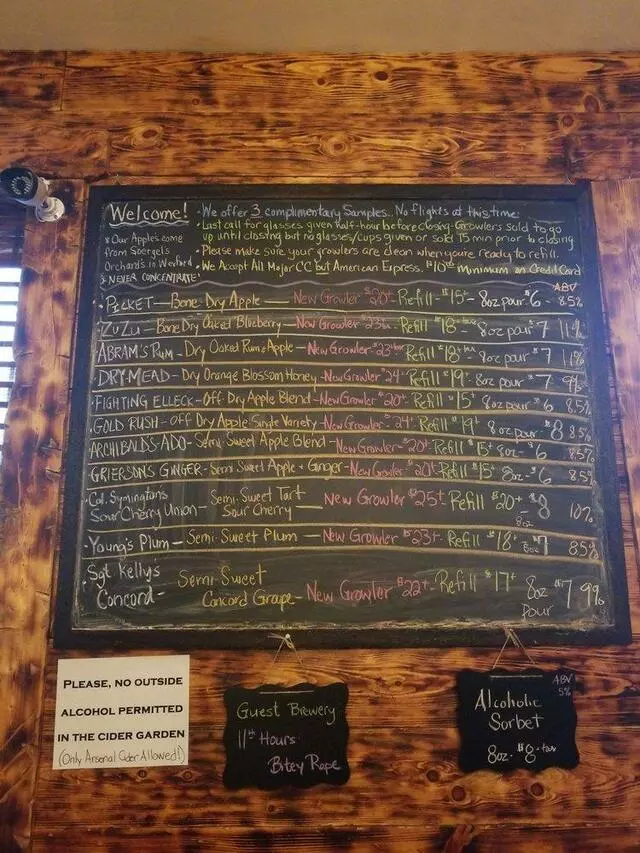 Welcome!
* Our Apples come
from Soergels
Orchards in Wexford
& NEVER CONCENTRATE!
• We offer 3 complimentary Samples. No flights at this time.
• Last call for glasses given half-hour before closing. Growlers sold to go
up until closing but no glasses/cups given or sold 15 min prior to closing
• Please make sure your growlers are clean when you're ready to refill.
• We Accept All Major CC but American Express. $10 minimum on Credit Card
ABV
PICKET - Bone Dry Apple - New Growler $20+ Refill - $15+ 8oz pour $6 - 8.5%
ZUZU - Bone Dry Oaked Blueberry - New Growler $23+ Refill $18+ 8oz pour $7 11%
ABRAM'S RUM - Dry Oaked Rum & Apple - New Growler $23+ Refill $18+ 8oz pour $7 11%
DRY MEAD - Dry Orange Blossom Honey - New Growler $24+ Refill $19+ 8oz pour $7 9%
FIGHTING ELLECK - Off Dry Apple Blend - New Growler $20+ Refill $15+ 8oz pour $6 8.5%
GOLD RUSH - Off Dry Apple Single Variety - New Growler $24+ Refill $19+ 8oz pour $8 8.5%
ARCHIBALD'S ADO - Semi-Sweet Apple Blend - New Growler $20+ Refill $15+ 8oz - $6 8.5%
GRIERSON'S GINGER - Semi Sweet Apple + Ginger - New Growler $20+ Refill $15+ 8oz - $6 8.5%
Col. Symington's
Sour Cherry Union - Semi-Sweet Tart
Sour Cherry - New Growler $25+ Refill $20+ 8oz $8 10%
Young's Plum - Semi Sweet Plum - New Growler $23+ Refill $18+ 8oz $7 8.5%
Sgt Kelly's
Concord - Semi Sweet
Concord Grape - New Growler $22+ Refill $17+ 8oz
Pour $7 9%
PLEASE, NO OUTSIDE
ALCOHOL PERMITTED
IN THE CIDER GARDEN
(Only Arsenal Cider Allowed!)
Guest Brewery
11th Hours
Bitey Rope
ABV
5%
Alcoholic
Sorbet
8oz - $8 + tax